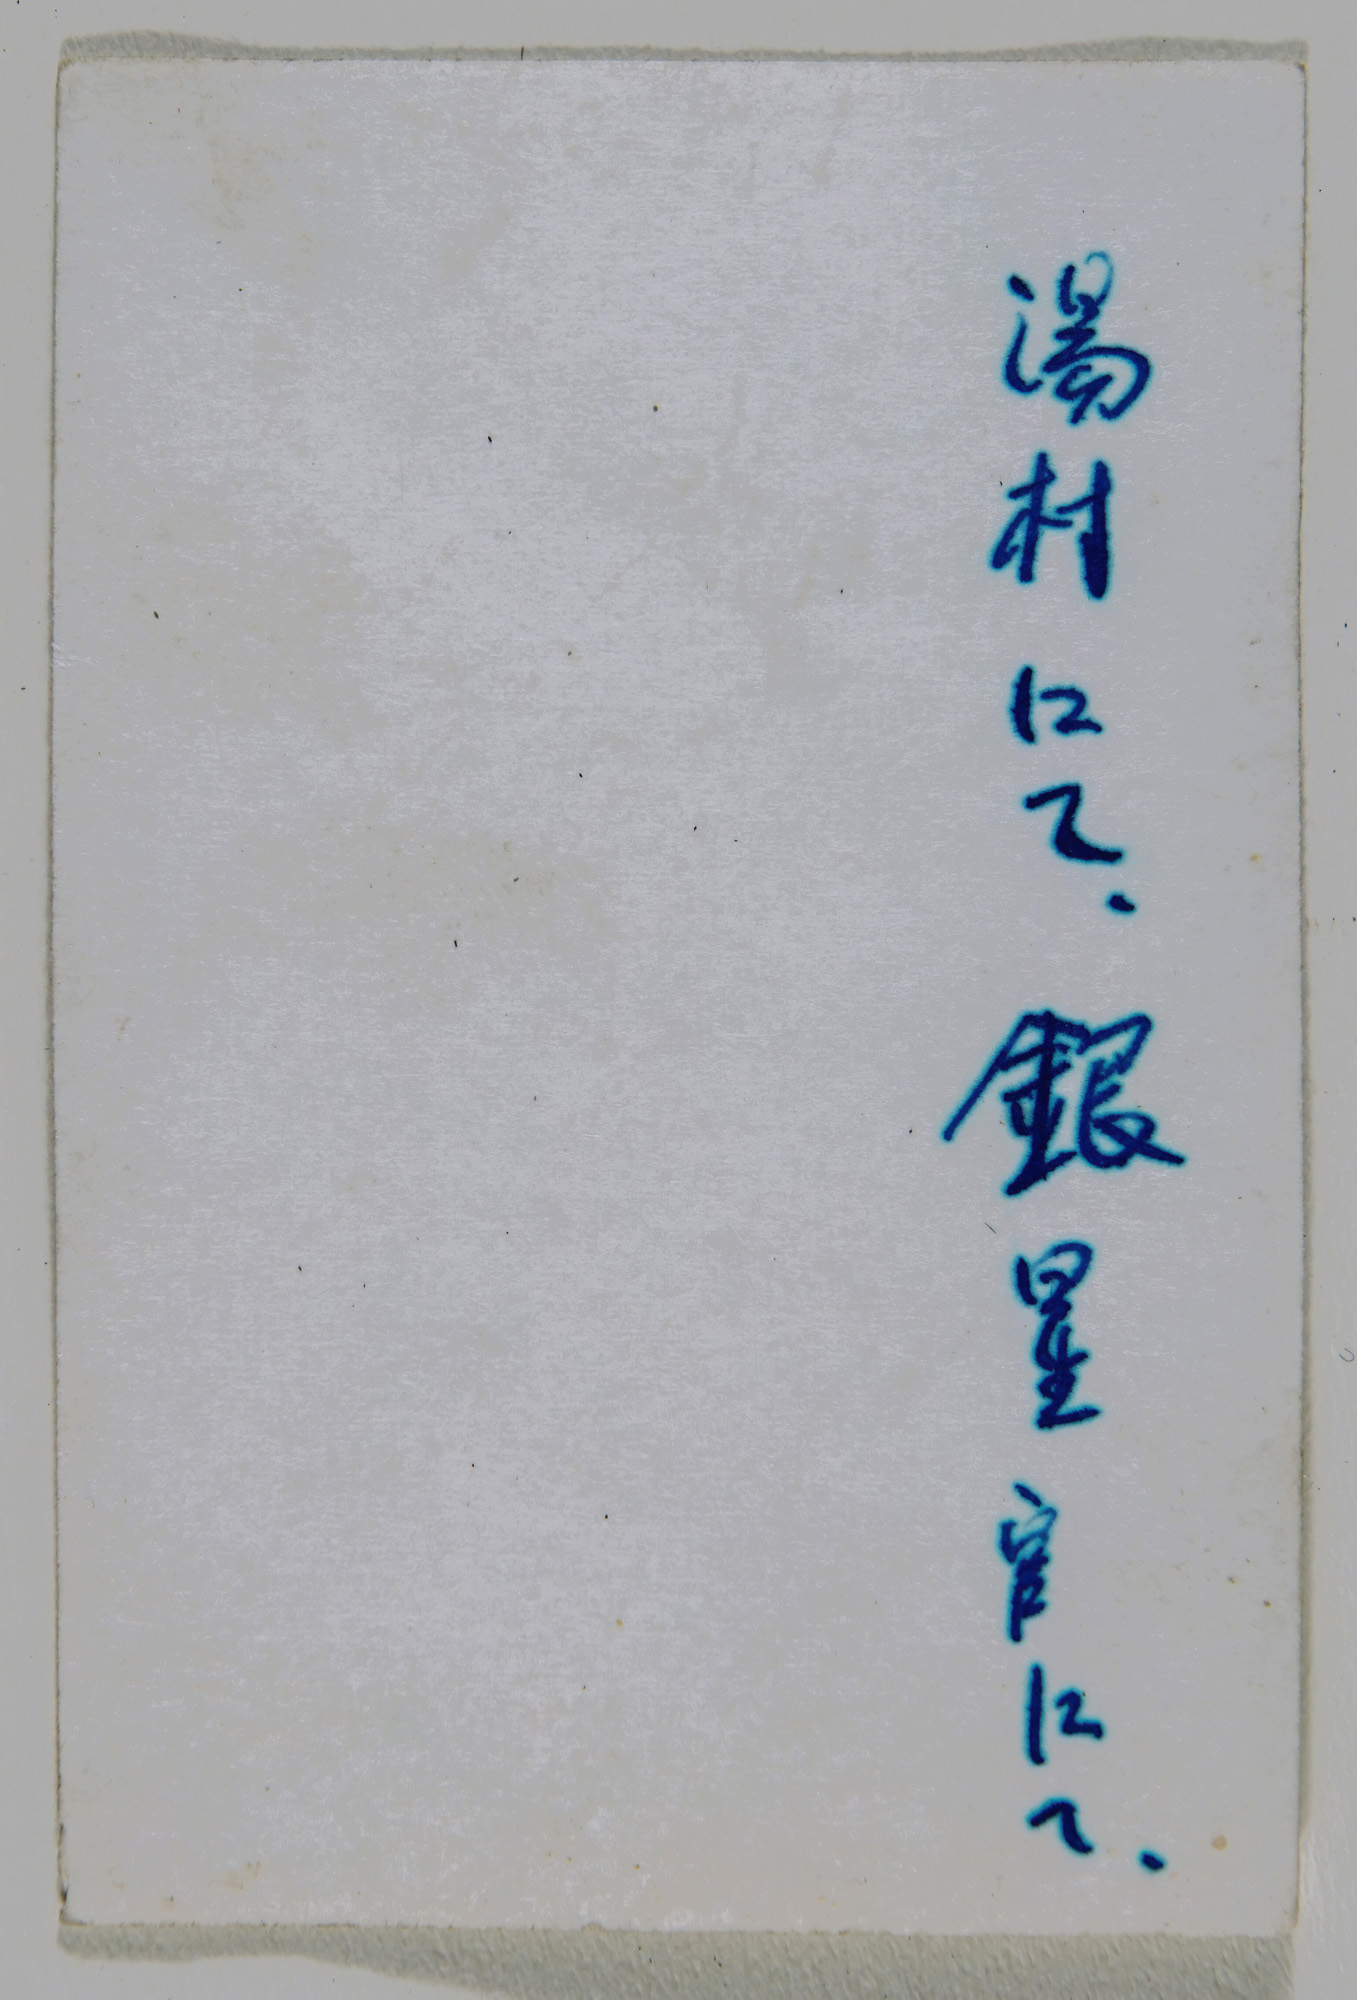 湯村にて.銀星官にて.